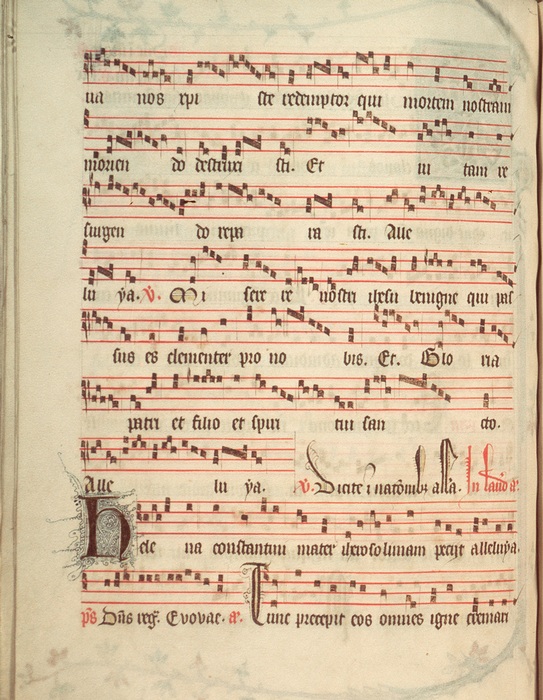 ua nos xpi ste redemptor qui mortem nostram
morien do destruxi sti. Et ui tam re
surgen do repa ra sti. Alle
lu ya. V. Mi sere re nostri ihesu benigne qui pas
sus es clementer pro no bis. Et. Glo ria
patri et filio et spiri tui san cto.
Alle lu ya. V. Dicite i nationibz alla. In laud a.
Hele na constantini mater iherosolimam peciit alleluya.
ps Dns reg. Evovae. a. Tunc precepit eos omnes igne cremari